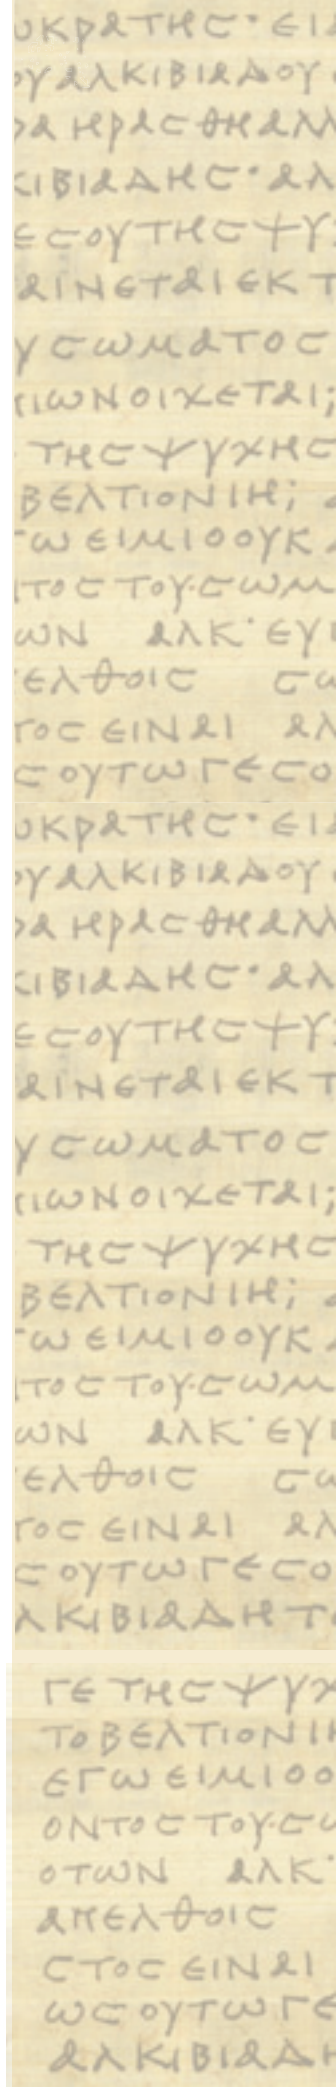 ΩΚΡΑΤΗС· ΕΙΑ
ΟΥΑΛΚΙΒΙΑΔΟΥ
ΡΑ ΗΡΑСΘΗ ΑΛΛ
ΚΙΒΙΑΔΗС· ΑΛ
ΕСΟΥ ΤΗС ΨΥ
ΑΙΝΕΤΑΙ ΕΚ Τ
Υ СΩΜΑΤΟС
ΠΙΩΝ ΟΙΧΕΤΑΙ;
ΤΗС ΨΥΧΗС
ΒΕΛΤΙΟΝ ΙΗ;
ΓΩ ΕΙΜΙ Ο ΟΥΚ Α
ΝΤΟС ΤΟΥ·СΩΜ
ΩΝ ΑΛΚ· ΕΥΓ
ΕΛΘΟΙС СΩ
ΤΟС ΕΙΝΑΙ ΑΛ
С ΟΥΤΩ ΓΕ СΟ
ΩΚΡΑΤΗС· ΕΙΑ
ΟΥΑΛΚΙΒΙΑΔΟΥ
ΡΑ ΗΡΑСΘΗ ΑΛΛ
ΚΙΒΙΑΔΗС· ΑΛ
ΕСΟΥ ΤΗС ΨΥ
ΑΙΝΕΤΑΙ ΕΚ Τ
Υ СΩΜΑΤΟС
ΠΙΩΝ ΟΙΧΕΤΑΙ;
ΤΗС ΨΥΧΗС
ΒΕΛΤΙΟΝ ΙΗ;
ΓΩ ΕΙΜΙ Ο ΟΥΚ Α
ΝΤΟС ΤΟΥ·СΩΜ
ΩΝ ΑΛΚ· ΕΥΓ
ΕΛΘΟΙС СΩ
ΤΟС ΕΙΝΑΙ ΑΛ
С ΟΥΤΩ ΓΕ СΟ
ΛΚΙΒΙΑΔΗ ΤΟ
ΓΕ ΤΗС ΨΥΧ
ΤΟ ΒΕΛΤΙΟΝ ΙΗ
ΕΓΩ ΕΙΜΙ Ο Ο
ΟΝΤΟС ΤΟΥ·СΩ
ΟΤΩΝ ΑΛΚ·
ΑΠΕΛΘΟΙС
СΤΟС ΕΙΝΑΙ
ΩС ΟΥΤΩ ΓΕ
ΑΛΚΙΒΙΑΔΗ